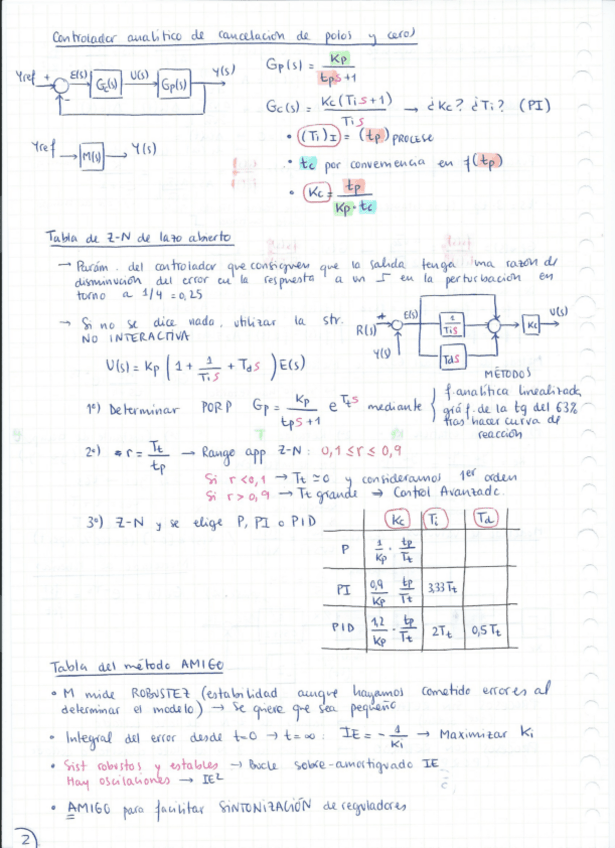 Controlador analítico de cancelación de polos y ceros
Yref + E(s) Gc(s) U(s) Gp(s) Y(s)
-
Gp(s) = Kp / (tps+1)
Gc(s) = Kc(Tis+1) / Tis → ¿Kc? ¿Ti? (PI)
Yref → M(s) → Y(s)
• (Ti)I = (tp)PROCESO
• tc por conveniencia en f(tp)
• Kc = tp / (Kp·tc)
Tabla de Z-N de lazo abierto
→ Parám. del controlador que consiguen que la salida tenga una razón de
disminución del error en la respuesta a un en la perturbación en
torno a 1/4 = 0,25
→ Si no se dice nada, utilizar la str.
NO INTERACTIVA
U(s) = Kp (1 + 1/(Tis) + Tds) E(s)
R(s) + E(s) Tis Tds Kc U(s)
Y(s)
1º) Determinar PORP Gp = Kp / (tps+1) e^Tts mediante
MÉTODOS
f. analítica linealizada
gráf. de la tg del 63%
tras hacer curva de
reacción
2º) * r = Tt / tp → Rango app Z-N: 0,1 ≤ r ≤ 0,9
Si r < 0,1 → Tt ≃ 0 y consideramos 1er orden
Si r > 0,9 → Tt grande → Control Avanzado
3º) Z-N y se elige P, PI o PID
Kc Ti Td
P 1/Kp · tp/Tt
PI 0,9/Kp tp/Tt 3,33Tt
PID 1,2/Kp · tp/Tt 2Tt 0,5Tt
Tabla del método AMIGO
• M mide ROBUSTEZ (estabilidad aunque hayamos cometido errores al
determinar el modelo) → Se quiere que sea pequeño
• Integral del error desde t=0 → t=∞ : IE = - 1/Ki → Maximizar Ki
• Sist robustos y estables → Bucle sobre-amortiguado IE
Hay oscilaciones → IE²
• AMIGO para facilitar SINTONIZACIÓN de reguladores
2